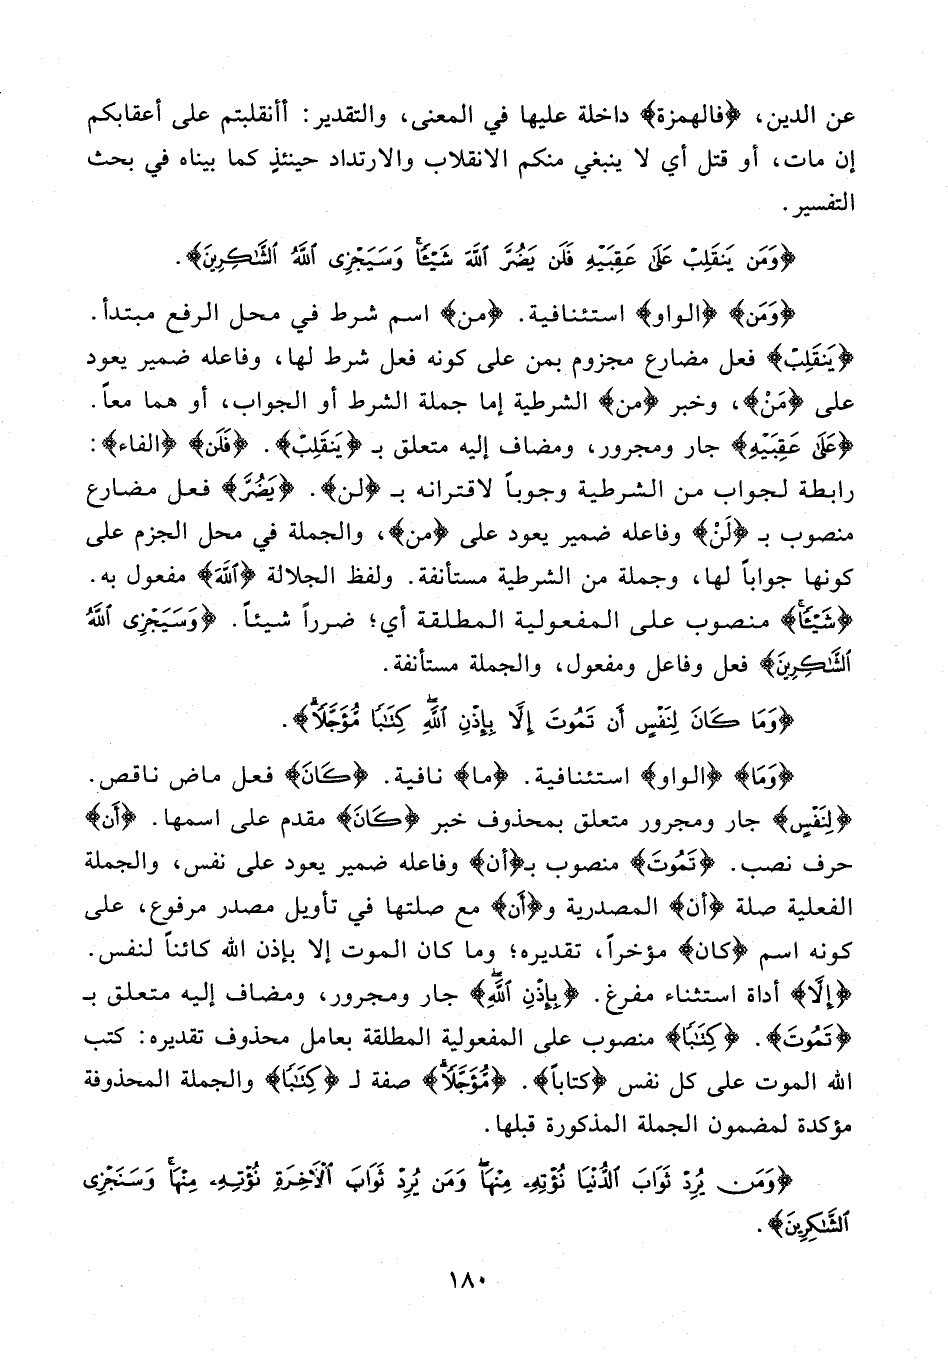 عن الدين، ﴿فالهمزة﴾ داخلة عليها في المعنى، والتقدير: أأنقلبتم على أعقابكم
إن مات، أو قتل أي لا ينبغي منكم الانقلاب والارتداد حينئذٍ كما بيناه في بحث
التفسير.
﴿وَمَن يَنقَلِبْ عَلَىٰ عَقِبَيْهِ فَلَن يَضُرَّ ٱللَّهَ شَيْـًٔا ۗ وَسَيَجْزِى ٱللَّهُ ٱلشَّـٰكِرِينَ﴾.
﴿وَمَن﴾ ﴿الواو﴾ استئنافية. ﴿من﴾ اسم شرط في محل الرفع مبتدأ.
﴿يَنقَلِبْ﴾ فعل مضارع مجزوم بمن على كونه فعل شرط لها، وفاعله ضمير يعود
على ﴿مَنْ﴾، وخبر ﴿من﴾ الشرطية إما جملة الشرط أو الجواب، أو هما معاً.
﴿عَلَىٰ عَقِبَيْهِ﴾ جار ومجرور، ومضاف إليه متعلق بـ ﴿يَنقَلِبْ﴾. ﴿فَلَن﴾ ﴿الفاء﴾:
رابطة لجواب من الشرطية وجوباً لاقترانه بـ ﴿لن﴾. ﴿يَضُرَّ﴾ فعل مضارع
منصوب بـ ﴿لَنْ﴾ وفاعله ضمير يعود على ﴿من﴾، والجملة في محل الجزم على
كونها جواباً لها، وجملة من الشرطية مستأنفة. ولفظ الجلالة ﴿ٱللَّهَ﴾ مفعول به.
﴿شَيْـًٔا ۗ﴾ منصوب على المفعولية المطلقة أي؛ ضرراً شيئاً. ﴿وَسَيَجْزِى ٱللَّهُ
ٱلشَّـٰكِرِينَ﴾ فعل وفاعل ومفعول، والجملة مستأنفة.
﴿وَمَا كَانَ لِنَفْسٍ أَن تَمُوتَ إِلَّا بِإِذْنِ ٱللَّهِ ۖ كِتَـٰبًا مُّؤَجَّلًا ۗ﴾.
﴿وَمَا﴾ ﴿الواو﴾ استئنافية. ﴿ما﴾ نافية. ﴿كَانَ﴾ فعل ماض ناقص.
﴿لِنَفْسٍ﴾ جار ومجرور متعلق بمحذوف خبر ﴿كَانَ﴾ مقدم على اسمها. ﴿أَن﴾
حرف نصب. ﴿تَمُوتَ﴾ منصوب بـ﴿أن﴾ وفاعله ضمير يعود على نفس، والجملة
الفعلية صلة ﴿أن﴾ المصدرية و﴿أَن﴾ مع صلتها في تأويل مصدر مرفوع، على
كونه اسم ﴿كان﴾ مؤخراً، تقديره؛ وما كان الموت إلا بإذن الله كائناً لنفس.
﴿إِلَّا﴾ أداة استثناء مفرغ. ﴿بِإِذْنِ ٱللَّهِ ۖ﴾ جار ومجرور، ومضاف إليه متعلق بـ
﴿تَمُوتَ﴾. ﴿كِتَـٰبًا﴾ منصوب على المفعولية المطلقة بعامل محذوف تقديره: كتب
الله الموت على كل نفس ﴿كتاباً﴾. ﴿مُّؤَجَّلًا ۗ﴾ صفة لـ ﴿كِتَـٰبًا﴾ والجملة المحذوفة
مؤكدة لمضمون الجملة المذكورة قبلها.
﴿وَمَن يُرِدْ ثَوَابَ ٱلدُّنْيَا نُؤْتِهِۦ مِنْهَا ۖ وَمَن يُرِدْ ثَوَابَ ٱلْـَٔاخِرَةِ نُؤْتِهِۦ مِنْهَا ۚ وَسَنَجْزِى
ٱلشَّـٰكِرِينَ﴾.
١٨٠